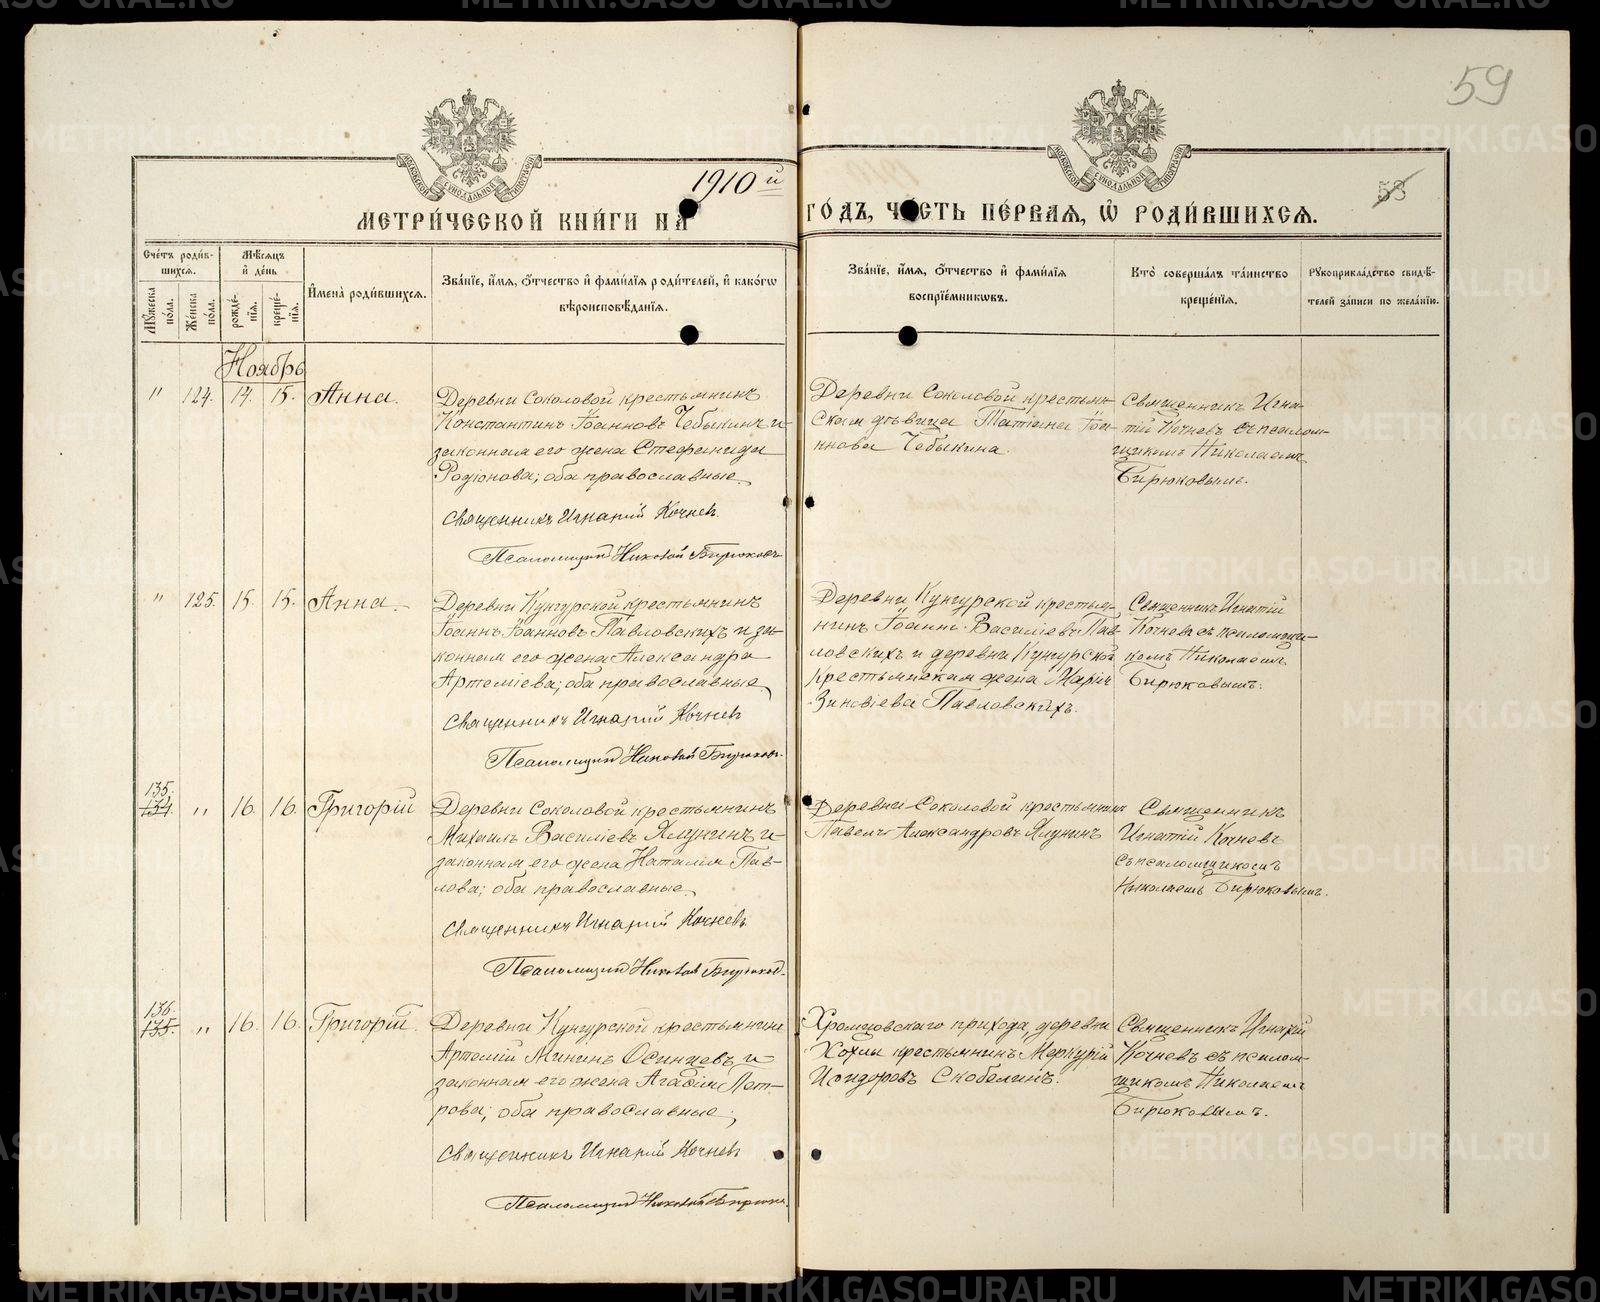 59
1910й
53
МЕТРИ́ЧЕСКОЙ КНИ́ГИ НА
ГО́ДЪ, ЧА́СТЬ ПЕ́РВАЯ, Ѡ҆ РОДИ́ВШИХСЯ.
Сче́тъ роди́в-
шихся.
Мꙋ́жеска по́ла.
Же́нска по́ла.
Мѣ́сяцъ
и҆ де́нь
рожде́-
нїя.
креще́-
нїя.
И҆мена̀ роди́вшихся.
Зва́нїе, и҆́мя, ѻ҆́тчество и҆ фами́лїя роди́телей, и҆ како́гѡ
вѣроисповѣ́данїя.
Зва́нїе, и҆́мя, ѻ҆́тчество и҆ фами́лїя
воспрїе́мникѡвъ.
Кто̀ соверша́лъ та́инство
креще́нїя.
Рꙋкоприкла́дство свидѣ́-
телей за́писи по жела́нїю.
Ноябрь
" 124. 14. 15. Анна.
Деревни Соколовой крестьянинъ
Константинъ Іоанновъ Чебыкинъ и
законная его жена Стефанида
Родіонова; оба православные.
Священникъ Игнатій Кочневъ.
Псаломщикъ Николай Бирюковъ
Деревни Соколовой крестьян-
ская дѣвица Татіана Іоан-
нова Чебыкина.
Священникъ Игна-
тій Кочневъ съ псалом-
щикомъ Николаемъ
Бирюковымъ.
" 125. 15. 15. Анна.
Деревни Кунгурской крестьянинъ
Іоаннъ Іоанновъ Павловскихъ и за-
конная его жена Александра
Артеміева; оба православные.
Священникъ Игнатій Кочневъ
Псаломщикъ Николай Бирюковъ.
Деревни Кунгурской крестья-
нинъ Іоаннъ Василіевъ Пав-
ловскихъ и деревни Кунгурской
крестьянская жена Марія
Зиновіева Павловскихъ.
Священникъ Игнатій
Кочневъ съ псаломщи-
комъ Николаемъ
Бирюковымъ.
135.
134. " 16. 16. Григорій
Деревни Соколовой крестьянинъ
Михаилъ Василіевъ Ялунинъ и
законная его жена Наталія Пав-
лова; оба православные.
Священникъ Игнатій Кочневъ
Псаломщикъ Николай Бирюковъ.
Деревни Соколовой крестьянинъ
Павелъ Александровъ Ялунинъ
Священникъ
Игнатій Кочневъ
съ псаломщикомъ
Николаемъ Бирюковымъ.
136.
135. " 16. 16. Григорій.
Деревни Кунгурской крестьянинъ
Артемій Мининъ Осинцевъ и
законная его жена Агафія Пет-
рова; оба православные.
Священникъ Игнатій Кочневъ
Псаломщикъ Николай Бирюковъ.
Хромцовскаго прихода, деревни
Хохлы крестьянинъ Меркурій
Исидоровъ Скобелинъ.
Священникъ Игнатій
Кочневъ съ псалом-
щикомъ Николаемъ
Бирюковымъ.
METRIKI.GASO-URAL.RU